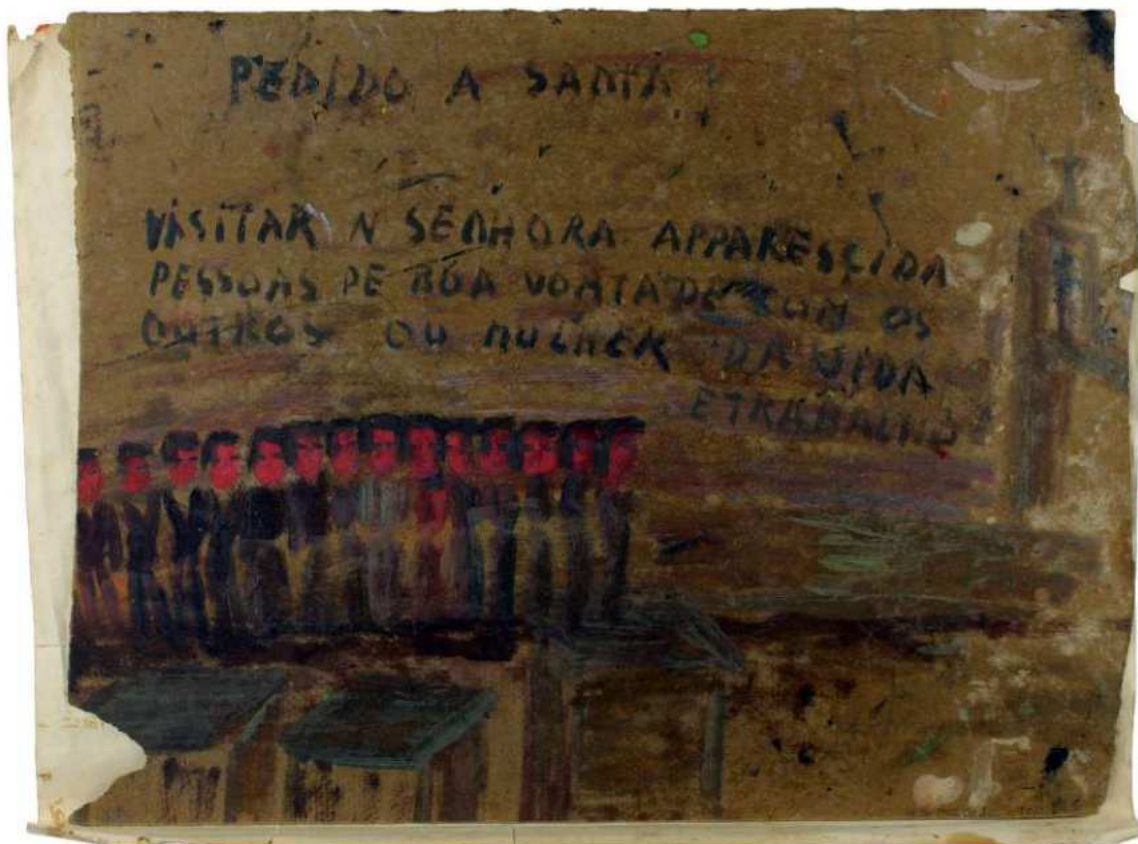 PEDIDO A SANTA!
VISITAR N SENHORA APPARESÇIDA
PESSOAS DE BOA VONTADE COM OS
OUTROS OU MULHER DA VIDA
E TRABALHO!